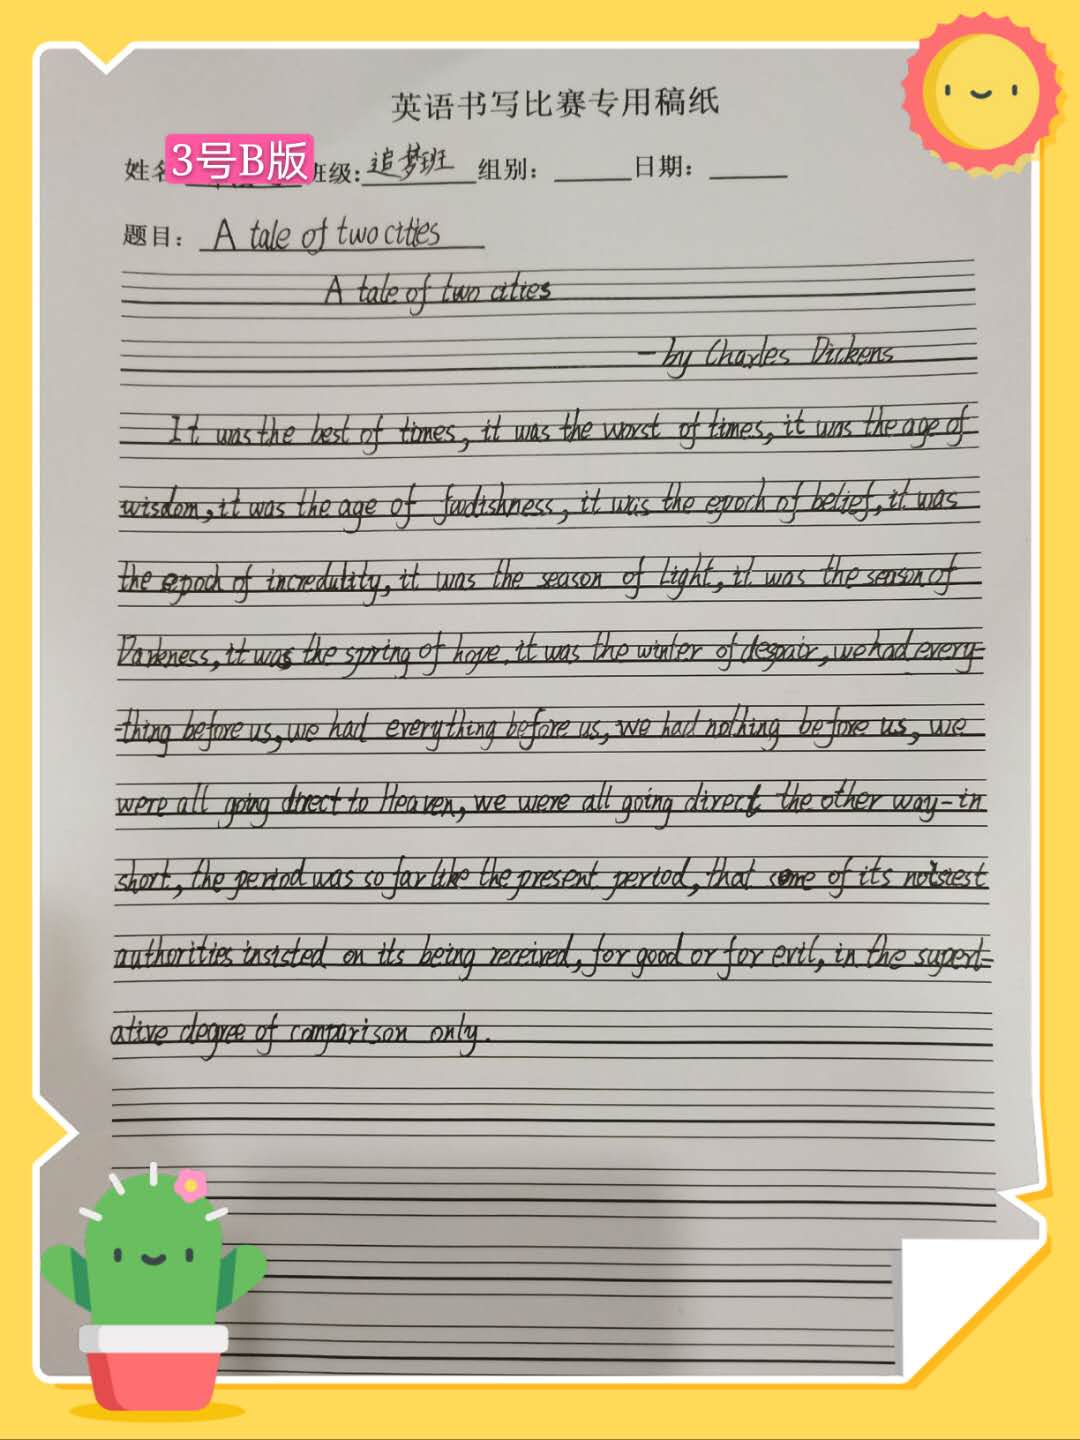 英语书写比赛专用稿纸
3号B版
姓名 班级: 追梦班 组别: 日期:
题目: A tale of two cities
A tale of two cities
- by Charles Dickens
It was the best of times, it was the worst of times, it was the age of
wisdom, it was the age of foolishness, it was the epoch of belief, it was
the epoch of incredulity, it was the season of Light, it was the season of
Darkness, it was the spring of hope, it was the winter of despair, we had every-
-thing before us, we had everything before us, we had nothing before us, we
were all going direct to Heaven, we were all going direct the other way-in
short, the period was so far like the present period, that some of its noisiest
authorities insisted on its being received, for good or for evil, in the superl-
ative degree of comparison only.